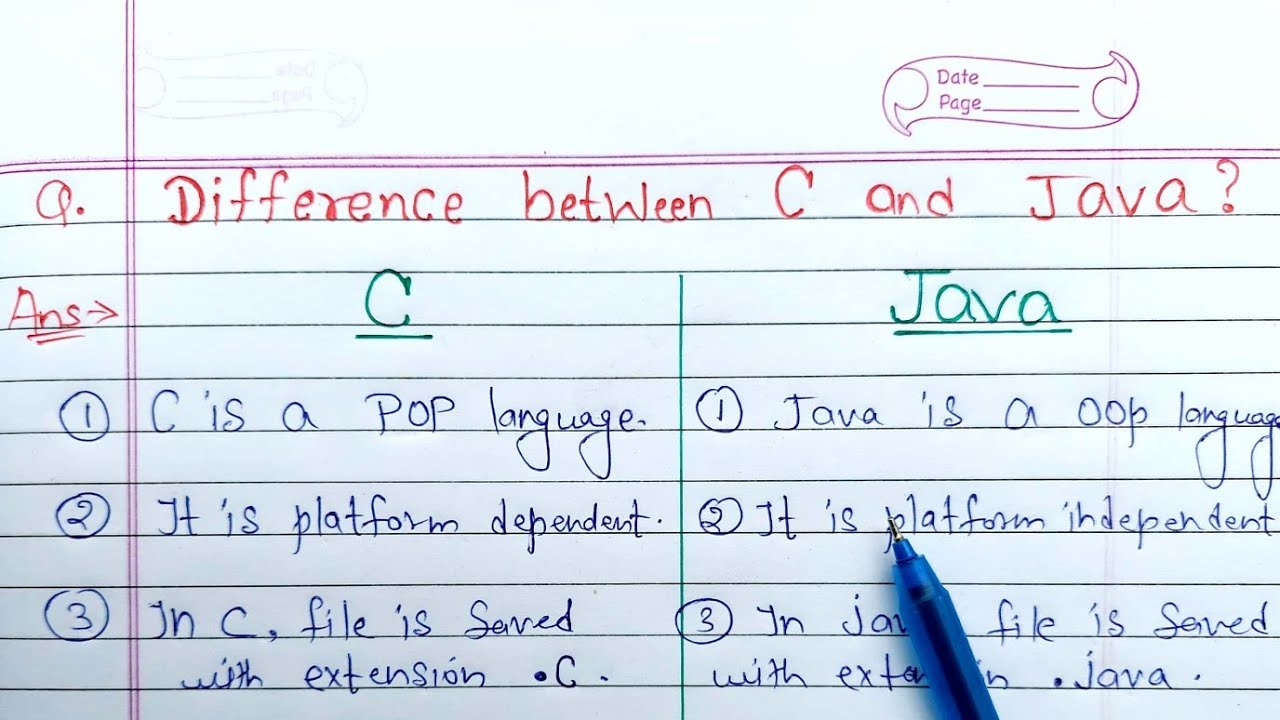 Date
Page
Q. Difference between C and Java?
Ans→ C Java
① C is a POP language. ① Java is a OOP language
② It is platform dependent. ② It is platform independent
③ In C, file is Saved ③ In java file is Saved
with extension .C. with extension .java.